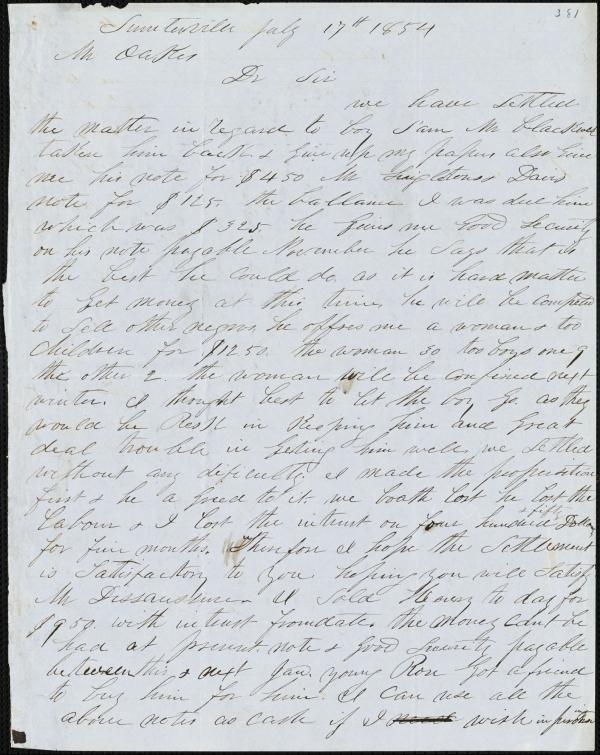 381
Sumterville July 17th 1854
Mr Oakes
Dr Sir
we have settled
the matter in regard to boy Sam Mr Blackwell
taken him back & give up my papers also give
me his note for $450 Mr Singletons & Davis
note for $125. the ballance I was due him
which was $325 he gives me good security
on his note payable November he says that is
the best he could do. as it is hard matter
to get money at this time, he will be compeled
to sell other negros. he offres me a woman & too
children for $1250. the woman 30 too boys one 9
the other 2. the woman will be confined next
winter. I thought best to let the boy go as they
would be Resk in Keeping him and great
deal trouble in geting him well. we settled
without any dificulty. I made the proposition
first & he agreed to it. we boath lost he lost the
labour & I lost the intrust on four hundred & fifty Dollars
for five months. Therefore I hope the settlement
is satisfactory to you. hoping you will satisfy
Mr I sold Henry to day for
$950. with intrust from date. the money cant be
had at present. note & good security payable
between this & next Jan. young got a friend
to buy him for him. I can use all the
above notes as cash if I wish in